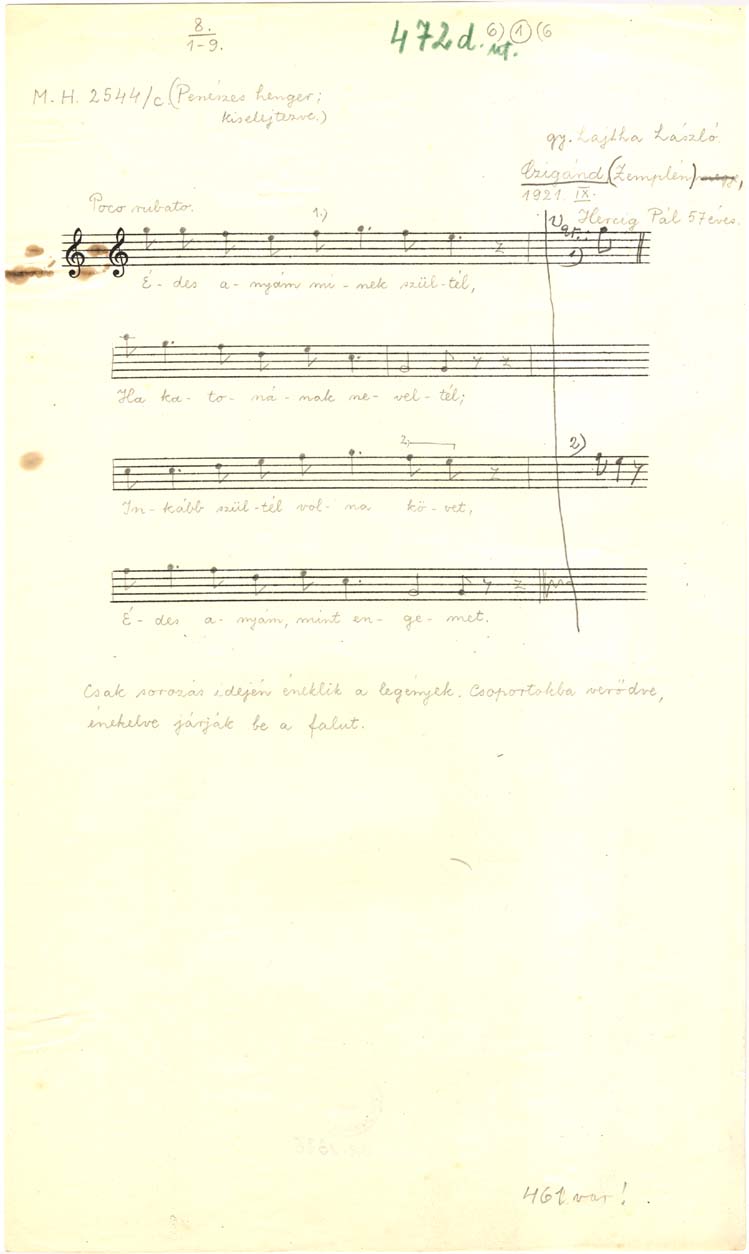 8.
1-9.
472d.
6) 1 (6
M. H. 2544/c (Penészes henger;
kiselejtezve.)
gy. Lajtha László.
Czigánd (Zemplén) megye,
1921. IX.
Herczig Pál 57 éves.
Poco rubato.
1.)
Var.:
1)
É- des a- nyám mi- nek szül- tél,
Ha ka- to- ná- nak ne- vel- tél;
2.
2)
In- kább szül- tél vol- na kö- vet,
É- des a- nyám, mint en- ge- met.
Csak sorozás idején éneklik a legények. Csoportokba verődve,
énekelve járják be a falut.
461 var!